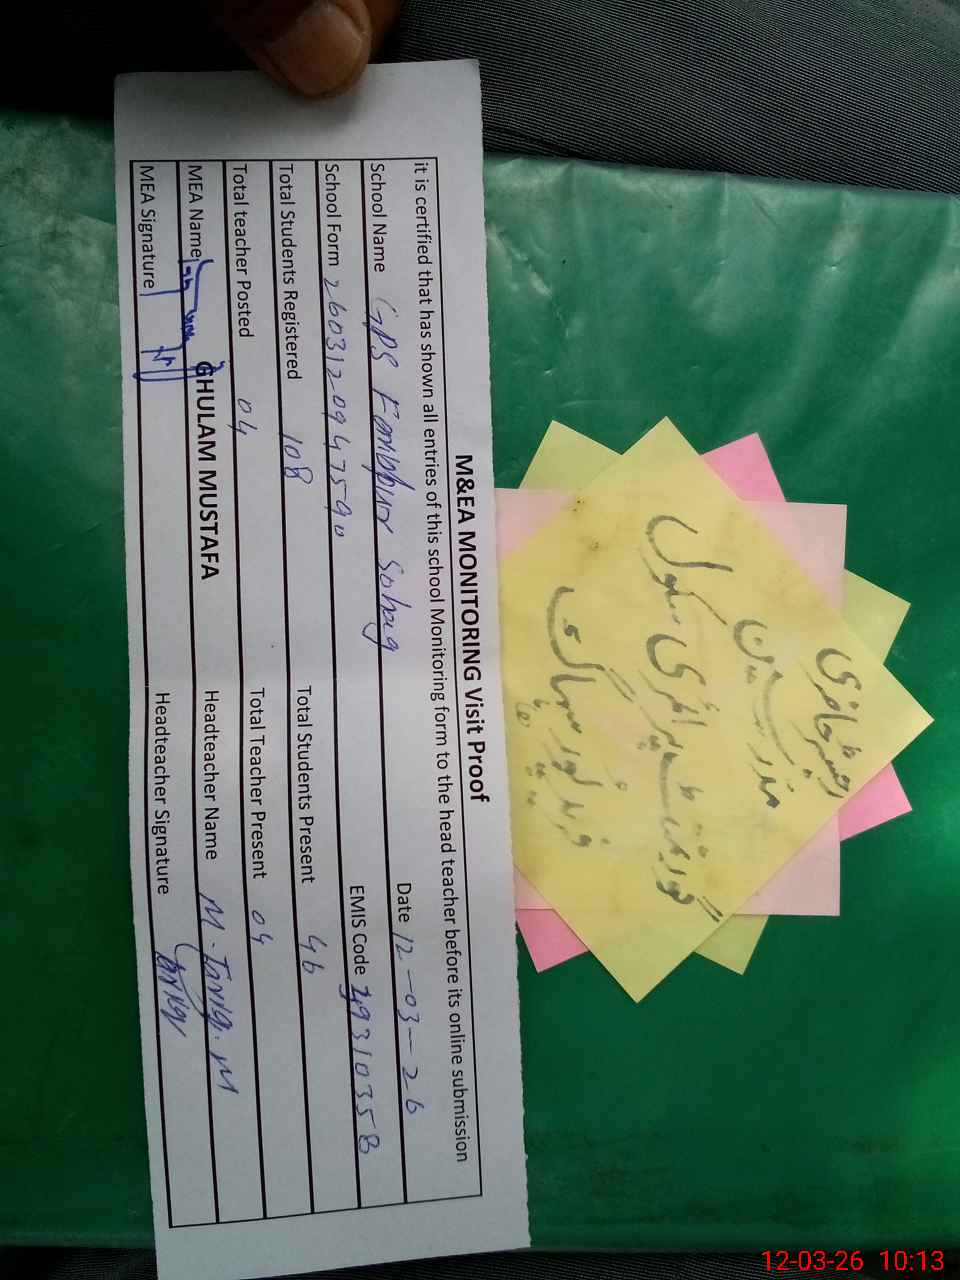 M&EA MONITORING Visit Proof
it is certified that has shown all entries of this school Monitoring form to the head teacher before its online submission
School Name GPS Faridpur Sohag Date 12-03-26
School Form 260312094757590 EMIS Code 39310358
Total Students Registered 108 Total Students Present 46
Total teacher Posted 04 Total Teacher Present 04
MEA Name GHULAM MUSTAFA Headteacher Name M. Tariq. M
MEA Signature Headteacher Signature Tariq
رجسٹر حاضری
مدرسین
گورنمنٹ پرائمری سکول
فرید پور سہاگ
12-03-26 10:13